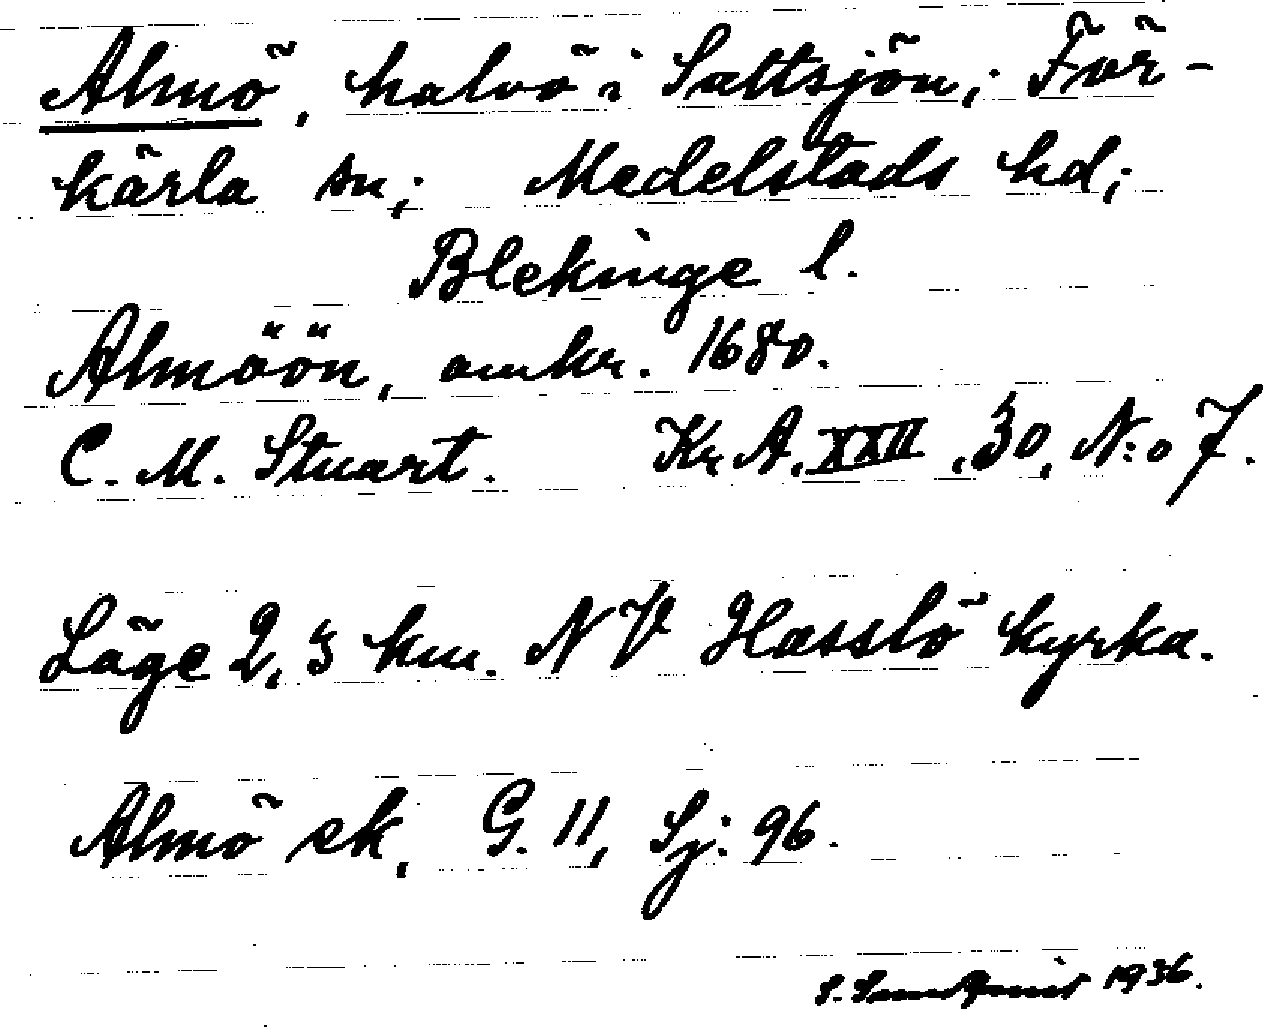 Almö, halvö i Saltsjön; För-
kärla sn; Medelstads hd;
Blekinge l.
Almöön, omkr. 1680.
C. M. Stuart. Kr. A. XXII, 30, N:o 7.
Läge 2,3 km. NV Hasslö kyrka.
Almö ek, G. 11, Sj: 96.
1936.